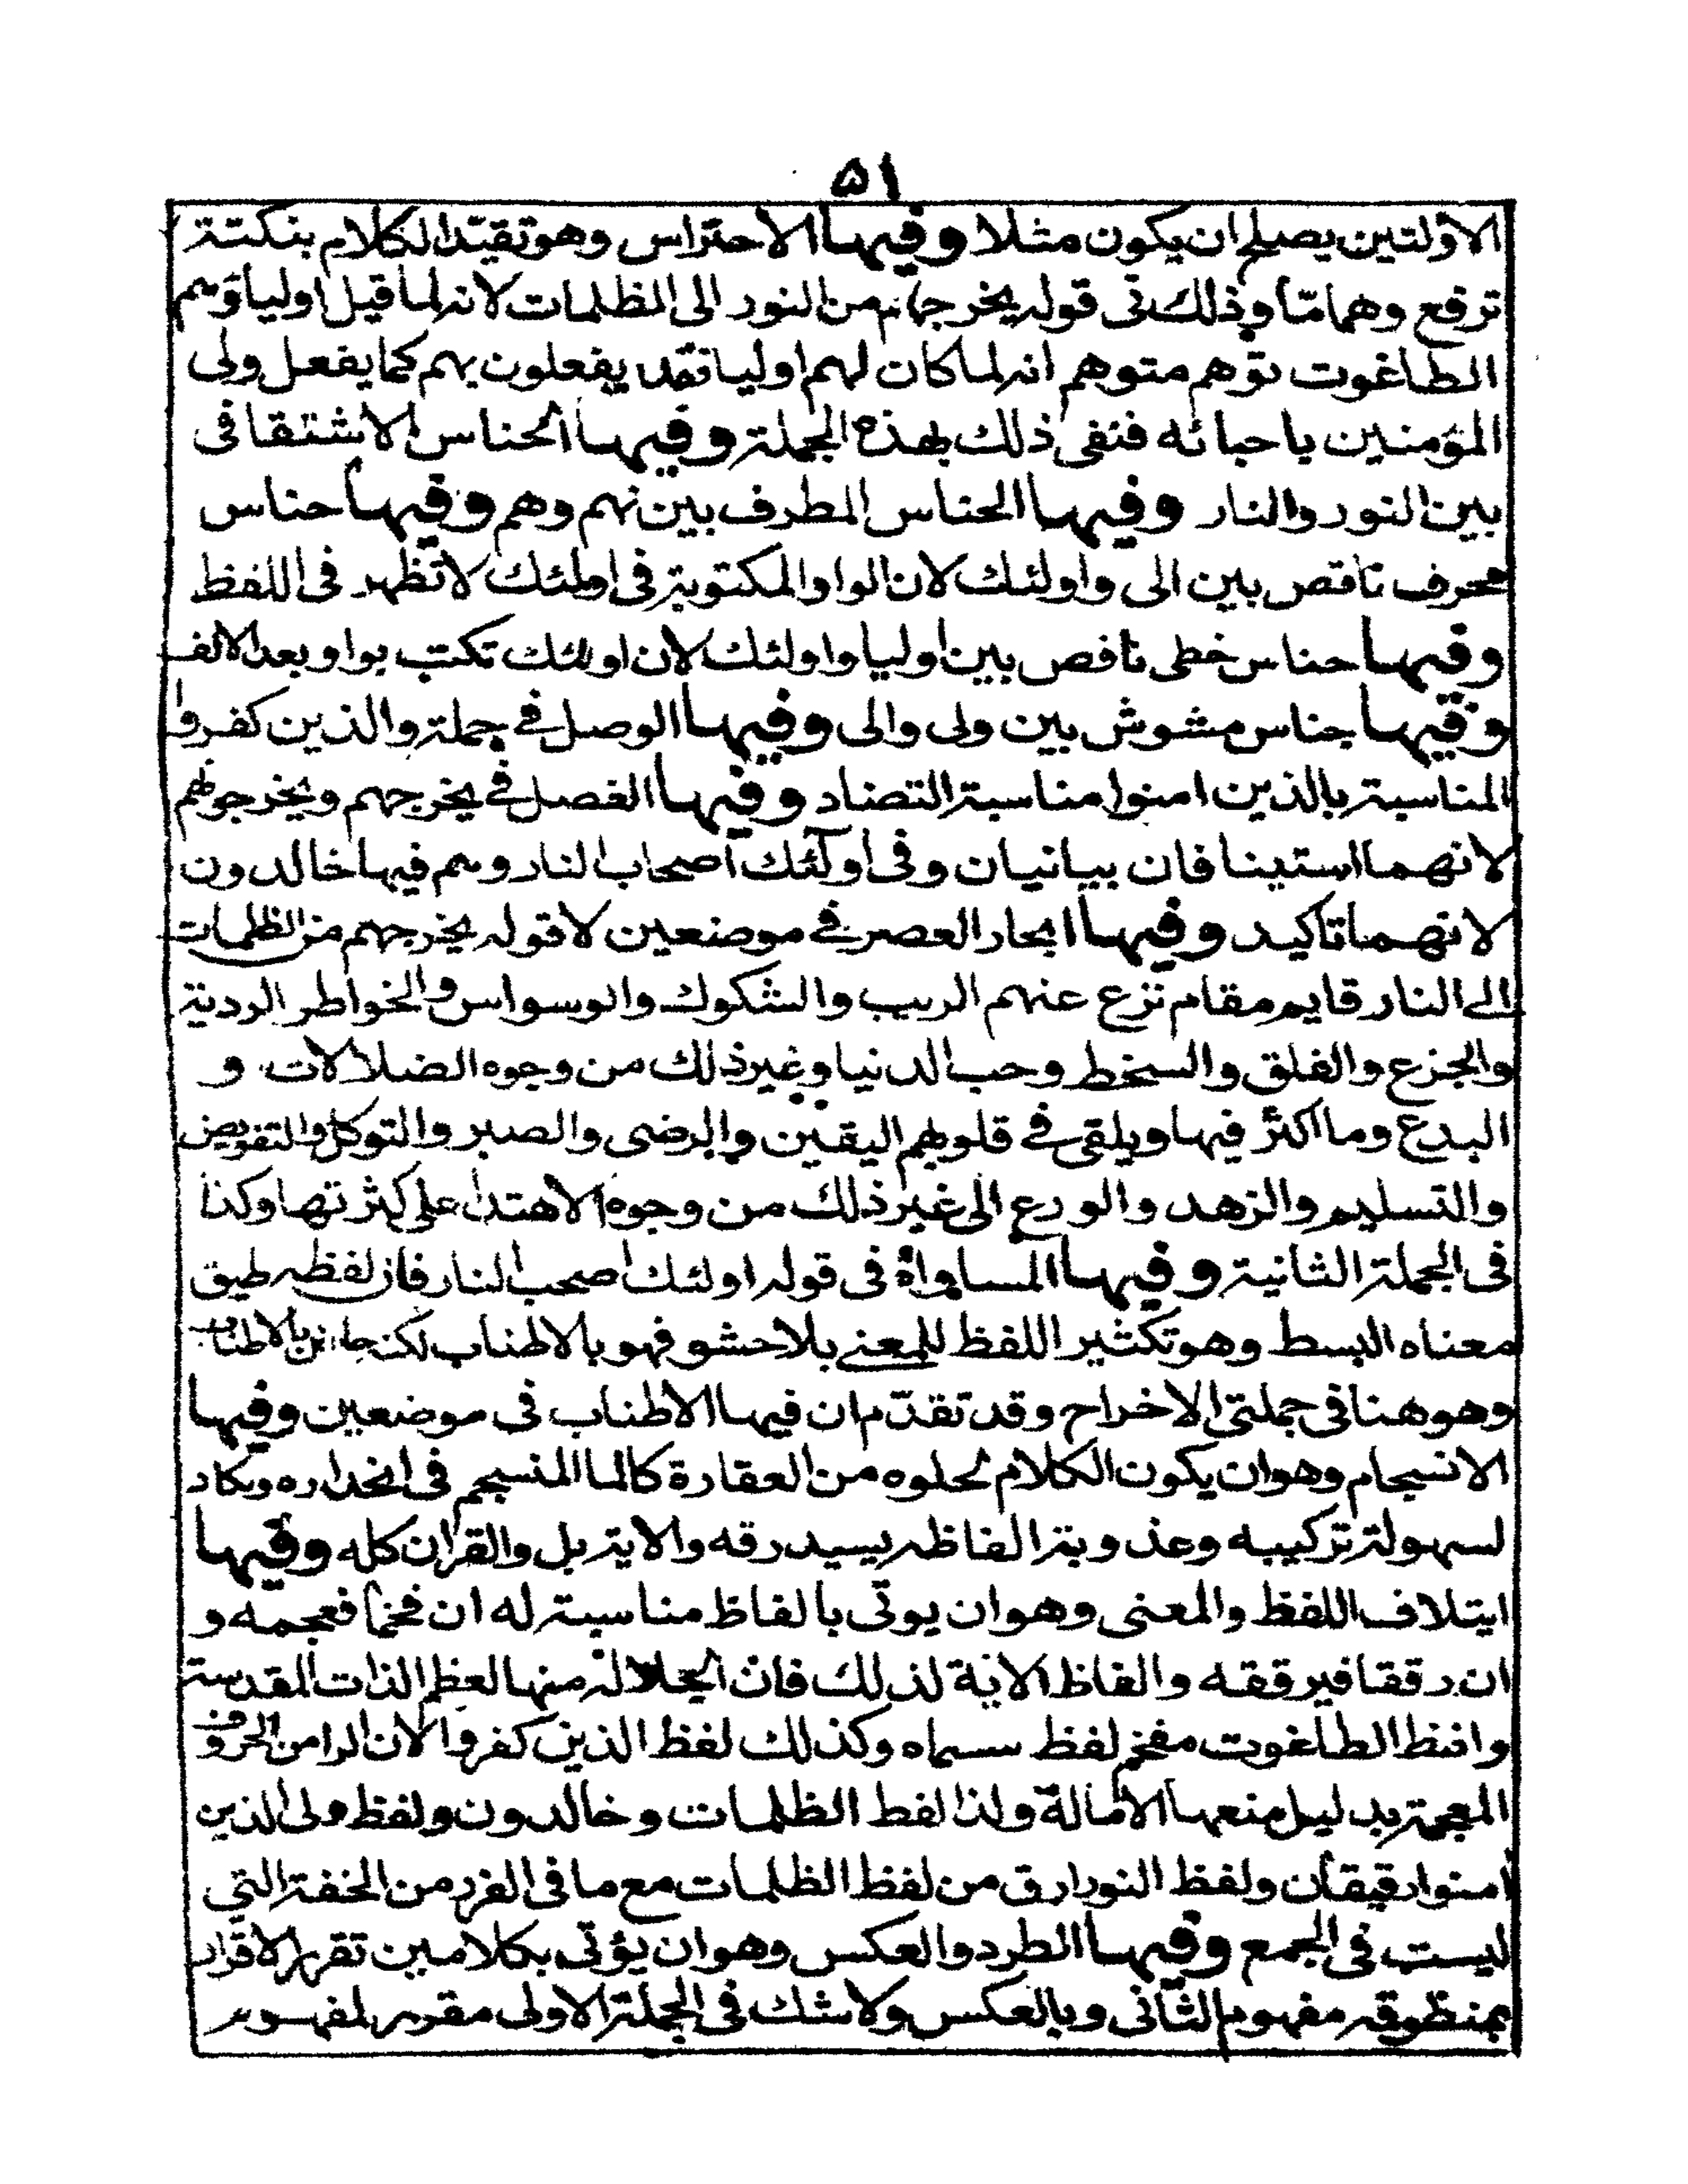 ٥١
الاولتين يصلح ان يكون مثلا وفيها الاحتراس وهو تقيّد الكلام بنكتة
ترفع وهما مّا وذلك فى قوله يخرجهم من النور الى المظلمات لانه لما قيل اولياؤهم
الطاغوت توهم متوهم انه لما كان لهم اوليا فقد يفعلون بهم كما يفعل ولى
المؤمنين باحبائه فنفى ذلك بهذه الجملة وفيها الحناس الاشتقاقى
بين النور والنار وفيها الحناس المطرف بين نهم وهم وفيها حناس
محرف ناقص بين الى واولئك لان الواو المكتوبة فى اولئك لا تظهر فى اللفظ
وفيها حناس خطى ناقص بين اوليا واولئك لان اولئك تكتب بواو بعد الالف
وفيها جناس مشوش بين ولى والى وفيها الوصل في جملة والذين كفروا
المناسبة بالذين امنوا مناسبة التضاد وفيها الفصل في يخرجهم ويخرجونهم
لانهما استينافان بيانيان وفى اولٓئك اصحاب النار وهم فيها خالدون
لانهما تاكيد وفيها ايجار العصر في موضعين لا قوله يخرجهم من الظلمات
الى النار قايم مقام نزع عنهم الريب والشكوك والوسواس والخواطر الردية
والجزع والقلق والسخط وحب الدنيا وغير ذلك من وجوه الضلالات و
البدع وما اكثر فيها ويلقى في قلوبهم اليقين والرضى والصبر والتوكل والتفويض
والتسليم والزهد والورع الى غير ذلك من وجوه الاهتدا على كثرتها وكذا
فى الجملة الثانية وفيها المساواة فى قوله اولئك اصحب النار فان لفظه طبق
معناه البسط وهو تكثير اللفظ للمعنى بلا حشو فهو بالاطناب لكن بالاطناب
وهو هنا فى جملتى الاخراج وقد تقدّم ان فيها الاطناب فى موضعين وفيها
الانسجام وهو ان يكون الكلام لخلوه من العقارة كالما المنسجم فى انحداره ويكاد
لسهولة تركيبه وعذوبة الفاظه يسيد رقه والاية بل والقران كله وفيها
ايتلاف اللفظ والمعنى وهو ان يوتى بالفاظ مناسبة له ان فخما فعجمه و
ان رققا فيرققه والفاظ الاية لذلك فان الجلالة منها لعظم الذات المقدسة
وافظ الطاغوت مفخم لفظ سماه وكذلك لفظ الذين كفروا لان الرا من الحروف
المعجمة بدليل منعها الامالة ولذا لفط الظلمات وخالدون ولفظ ولى الذين
امنوا رقيقان ولفظ النور ارق من لفظ الظلمات مع ما فى الفرد من الخفة التى
ليست فى الجمع وفيها الطرد والعكس وهو ان يؤتى بكلامين تقرر الاقرار
بمنظوقه مفهوم الثانى وبالعكس ولا شك فى الجملة الاولى مقرر لمفهوم